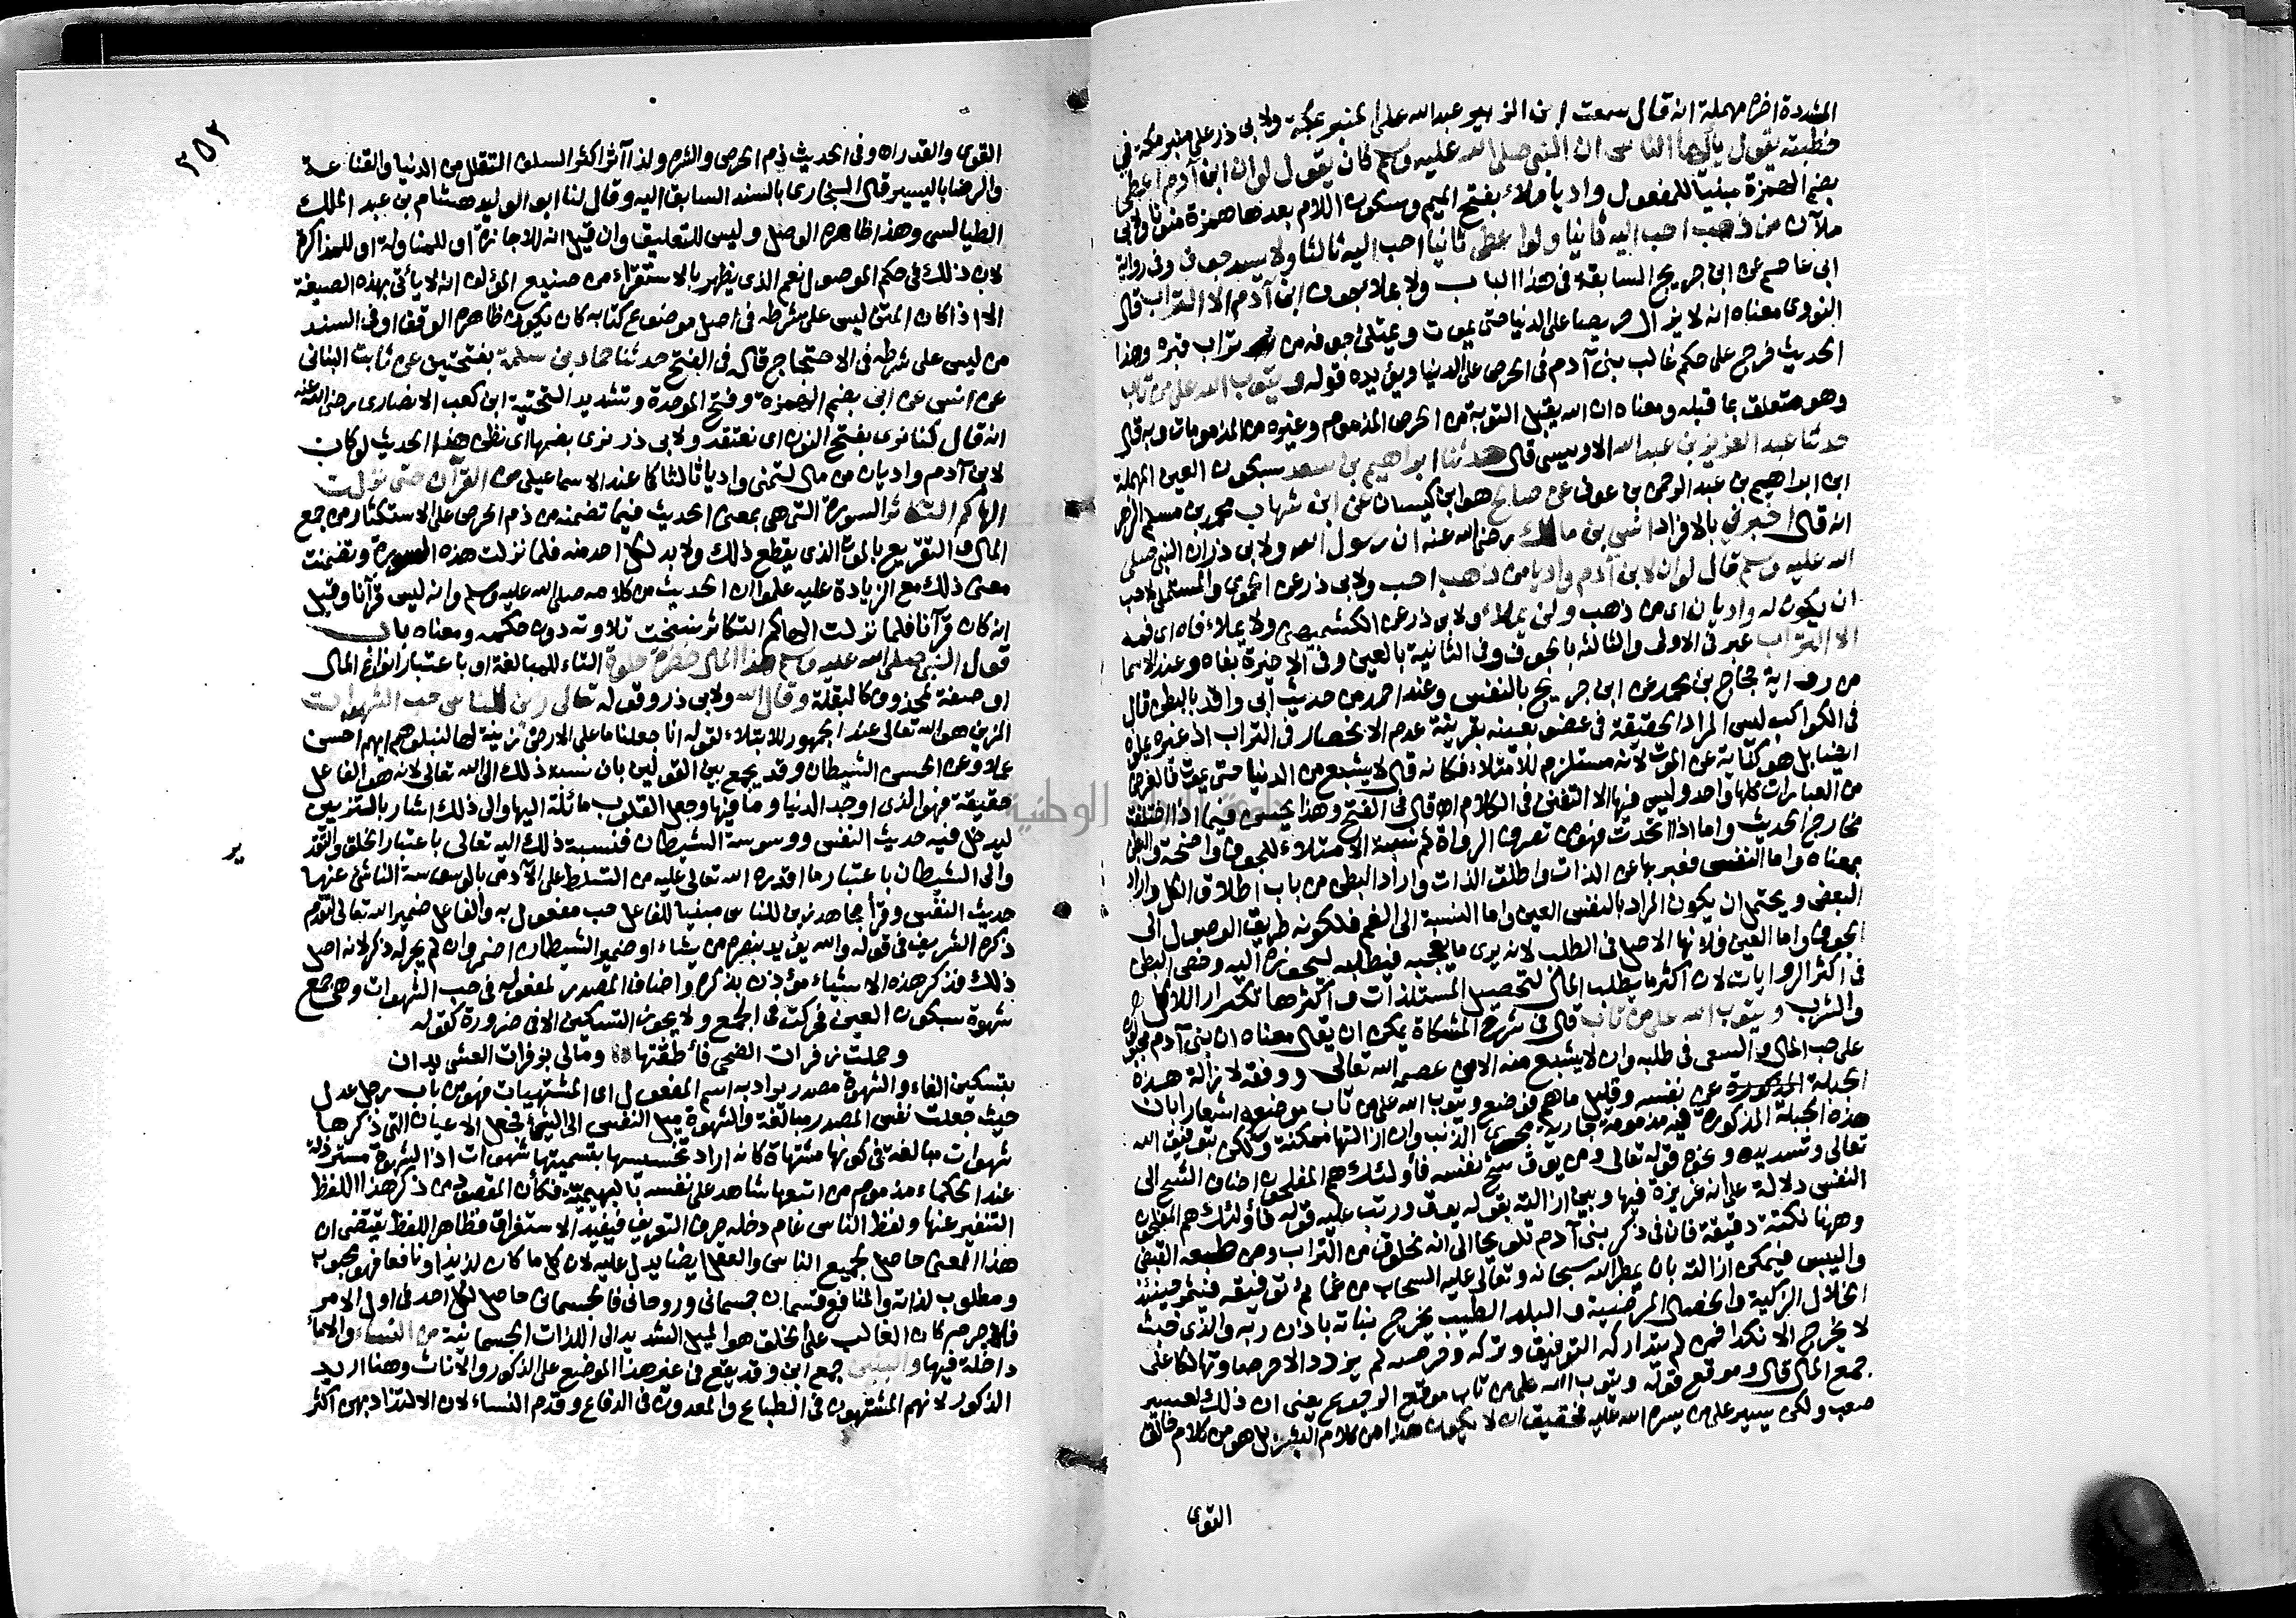 المشددة اخره مهملة انه قال سمعت ابن الزبير عبدالله على المنبر بمكة ولابى ذر على منبر مكة فى
خطبته يقول يا ايها الناس ان النبى صلى الله عليه وسلم كان يقول لو ان ابن آدم اعطى
بضم الهمزة مبنيا للمفعول واديا ملاء بفتح الميم وسكون اللام بعدها همزة منونا ولابى
ملآن من ذهب احب اليه ثانيا ولو اعطى ثانيا احب اليه ثالثا ولا يسد جوف وفى رواية
ابى عاصم عن ابن جريج السابقة فى هذا الباب ولا يملا جوف ابن آدم الا التراب قال
النووى معناه انه لا يزال حريصا على الدنيا حتى يموت ويمتلئ جوفه من تراب قبره وهذا
الحديث خرج على حكم غالب بنى آدم فى الحرص على الدنيا ويؤيده قوله ويتوب الله على من تاب
وهو متعلق بما قبله ومعناه ان الله يقبل التوبة من الحرص المذموم وغيره من المذمومات وبه قال
حدثنا عبد العزيز بن عبد الله الاويسى قال حدثنا ابراهيم بن سعد بسكون العين المهملة
ابن ابراهيم بن عبد الرحمن بن عوف عن صالح هو ابن كيسان عن ابن شهاب محمد بن مسلم الزهرى
انه قال اخبرنى بالافراد انس بن مالك رضى الله عنه ان رسول الله ولابى ذر ان النبى صلى
الله عليه وسلم قال لو ان لابن آدم واديا من ذهب احب ولابى ذر عن الحموى والمستملى لاحب
ان يكون له واديان اى من ذهب ولن يملاء ولابى ذر عن الكشميهنى ولا يملاء فاه اى فمه
الا التراب عبر فى الاولى والثالثة بالجوف وفى الثانية بالعين وفى الاخيرة بفاه وعند الاسما
من رواية حجاج بن محمد عن ابن جريج بالنفس وعند احمد من حديث ابى واقد بالبطن قال
فى الكواكب ليس المراد الحقيقة فى عضو بعينه بقرينة عدم الانحصار فى التراب اذ غيره يملؤه
ايضا بل هو كناية عن الموت لانه مستلزم للامتلاء فكانه قال لا يشبع من الدنيا حتى يموت فالغرض
من العبارات كلها واحد وليس فيها الا التفنن فى الكلام اه قال فى الفتح وهذا يحسن فيما اذا اختلفت
مخارج الحديث واما اذا اتحدت فهو من تصرف الرواة ثم نسبة الامتلاء للجوف واضحة والبطن
بمعناه واما النفس فعبر بها عن الذات واطلق الذات واراد البطن من باب اطلاق الكل واراد
البعض ويحتمل ان يكون المراد بالنفس العين واما النسبة الى الفم فلكونه طريق الوصول الى
الجوف واما العين فلانها الاصل فى الطلب لانه يرى ما يعجبه فيطلبه ليحوزه اليه وخص البطن
فى اكثر الروايات لان اكثر ما يطلب المال لتحصيل المستلذات واكثرها تكرار الاكل
والشرب ويتوب الله على من تاب قال فى شرح المشكاة يمكن ان يقال معناه ان بنى آدم مجبولون
على حب المال والسعى فى طلبه وان لا يشبع منه الا من عصمه الله تعالى ووفقه لازالة هذه
الجبلة عن نفسه وقليل ما هم فوضع ويتوب الله على من تاب موضعه اشعارا بان
هذه الجبلة المذكورة فيه مذمومة جارية مجرى الذنب وان ازالتها ممكنة ولكن بتوفيق الله
تعالى وتسديده ونحوه قوله تعالى ومن يوق شح نفسه فأولئك هم المفلحون اضاف الشح الى
النفس دلالة على انه غريزة فيها وبين ازالته بقوله يوق ورتب عليه قوله فاولئك هم المفلحون
وههنا نكتة دقيقة فان فى ذكر بنى آدم تلويحا الى انه مخلوق من التراب ومن طبعه القبض
واليبس فيمكن ازالته بان يمطر الله سبحانه وتعالى عليه السحاب من غمائم توفيقه فيثمر حينئذ
الخلال الزكية والخصال المرضية والبلد الطيب يخرج نباته باذن ربه والذى خبث
لا يخرج الا نكدا فمن لم يتداركه التوفيق وتركه وحرصه لم يزدد الا حرصا وتهالكا على
جمع المال قال وموقع قوله ويتوب الله على من تاب موقع الرجوع يعنى ان ذلك لعسير
صعب ولكن يسير على من يسره الله عليه فحقيق ان لا يكون هذا من كلام البشر بل هو من كلام خالق
القوى
٣٥٢
القوى والقدر اه وفى الحديث ذم الحرص والشره ولذا آثر اكثر السلف التقلل من الدنيا والقناعة
والرضا باليسير قال البخارى بالسند السابق اليه وقال لنا ابو الوليد هشام بن عبد الملك
الطيالسى وهذا ظاهره الوصل وليس للتعليق وان قيل انه للاجازة او للمناولة او للمذاكرة
لان ذلك فى حكم الموصول نعم الذى يظهر بالاستقراء من صنيع المؤلف انه لا يأتى بهذه الصيغة
الا اذا كان المتن ليس على شرطه فى اصل موضوع كتابه كان يكون ظاهره الوقف او فى السند
من ليس على شرطه فى الاحتجاج قاله فى الفتح حدثنا حماد بن سلمة بفتحتين عن ثابت البنانى
عن انس عن ابى بضم الهمزة وفتح الموحدة وتشديد التحتية ابن كعب الانصارى رضى الله عنه
انه قال كنا نرى بفتح النون اى نعتقد ولابى ذر نرى بضمها اى نظن هذا الحديث لو كان
لابن آدم واديان من مال لتمنى واديا ثالثا كما عند الاسماعيلى من القرآن حتى نزلت
الهاكم التكاثر السورة التى هى بمعنى الحديث فيما تضمنه من ذم الحرص على الاستكثار من جمع
المال والتقريع بالموت الذى يقطع ذلك ولابد لكل احد منه فلما نزلت هذه السورة وتضمنت
معنى ذلك مع الزيادة عليه علموا ان الحديث من كلامه صلى الله عليه وسلم وانه ليس قرآنا وقيل
انه كان قرآنا فلما نزلت الهاكم التكاثر نسخت تلاوته دون حكمه ومعناه باب
قول النبى صلى الله عليه وسلم هذا المال خضرة حلوة التاء للمبالغة او باعتبار انواع المال
او صفة لمحذوف كالبقلة وقال الله ولابى ذر وقوله تعالى زين للناس حب الشهوات
المزين هو الله تعالى عند الجمهور للابتلاء لقوله انا جعلنا ما على الارض زينة لها لنبلوهم ايهم احسن
عملا وعن الحسن الشيطان وقد يجمع بين القولين بان نسبة ذلك الى الله تعالى لانه هو الفاعل
حقيقة فهو الذى اوجد الدنيا وما فيها وجعل القلوب مائلة اليها والى ذلك اشار بالتزيين
ليدخل فيه حديث النفس ووسوسة الشيطان فنسبة ذلك اليه تعالى باعتبار الخلق والتقد
ير
والى الشيطان باعتبار ما اقدره الله تعالى عليه من التسلط على الآدمى بالوسوسة الناشئ عنها
حديث النفس وقرأ مجاهد زين للناس مبنيا للفاعل حب مفعول به والفاعل ضمير الله تعالى لتقدم
ذكره الشريف فى قوله والله يؤيد بنصره من يشاء او ضمير الشيطان اضمر وان لم يجر له ذكر لانه اصل
ذلك فذكر هذه الاشياء مؤذن بذكره واضاف المصدر لمفعوله فى حب الشهوات وهى جمع
شهوة بسكون العين فحركت فى الجمع ولا يجوز التسكين الا فى ضرورة كقوله
وحملت زفرات الضحى فأطقتها ومالى بزفرات العشى يدان
بتسكين الفاء والشهوة مصدر يراد به اسم المفعول اى المشتهيات فهو من باب رجل عدل
حيث جعلت نفس المصدر مبالغة والشهوة ميل النفس الى الشئ فجعل الاعيان التى ذكرها
شهوات مبالغة فى كونها مشتهاة كانه اراد تخسيسها بتسميتها شهوات اذ الشهوة مسترذلة
عند الحكماء مذموم من اتبعها شاهد على نفسه بالبهيمية فكأن المقصود من ذكر هذا اللفظ
التنفير عنها ولفظ الناس عام دخله حرف التعريف فيفيد الاستغراق فظاهر اللفظ يقتضى ان
هذا المعنى حاصل لجميع الناس والعقل ايضا يدل عليه لان كل ما كان لذيذا ونافعا فهو محبوب
ومطلوب لذاته والمنافع قسمان جسمانى وروحانى فالجسمانى حاصل لكل احد فى اول الامر
فلا جرم كان الغالب على الخلق هو الميل الشديد الى اللذات الجسمانية من النساء والاماء
داخلة فيها والبنين جمع ابن وقد يقع فى غير هذا الموضع على الذكور والاناث وهنا اريد
الذكور لانهم المشتهون فى الطباع والمعدون فى الدفاع وقدم النساء لان الالتذاذ بهن اكثر